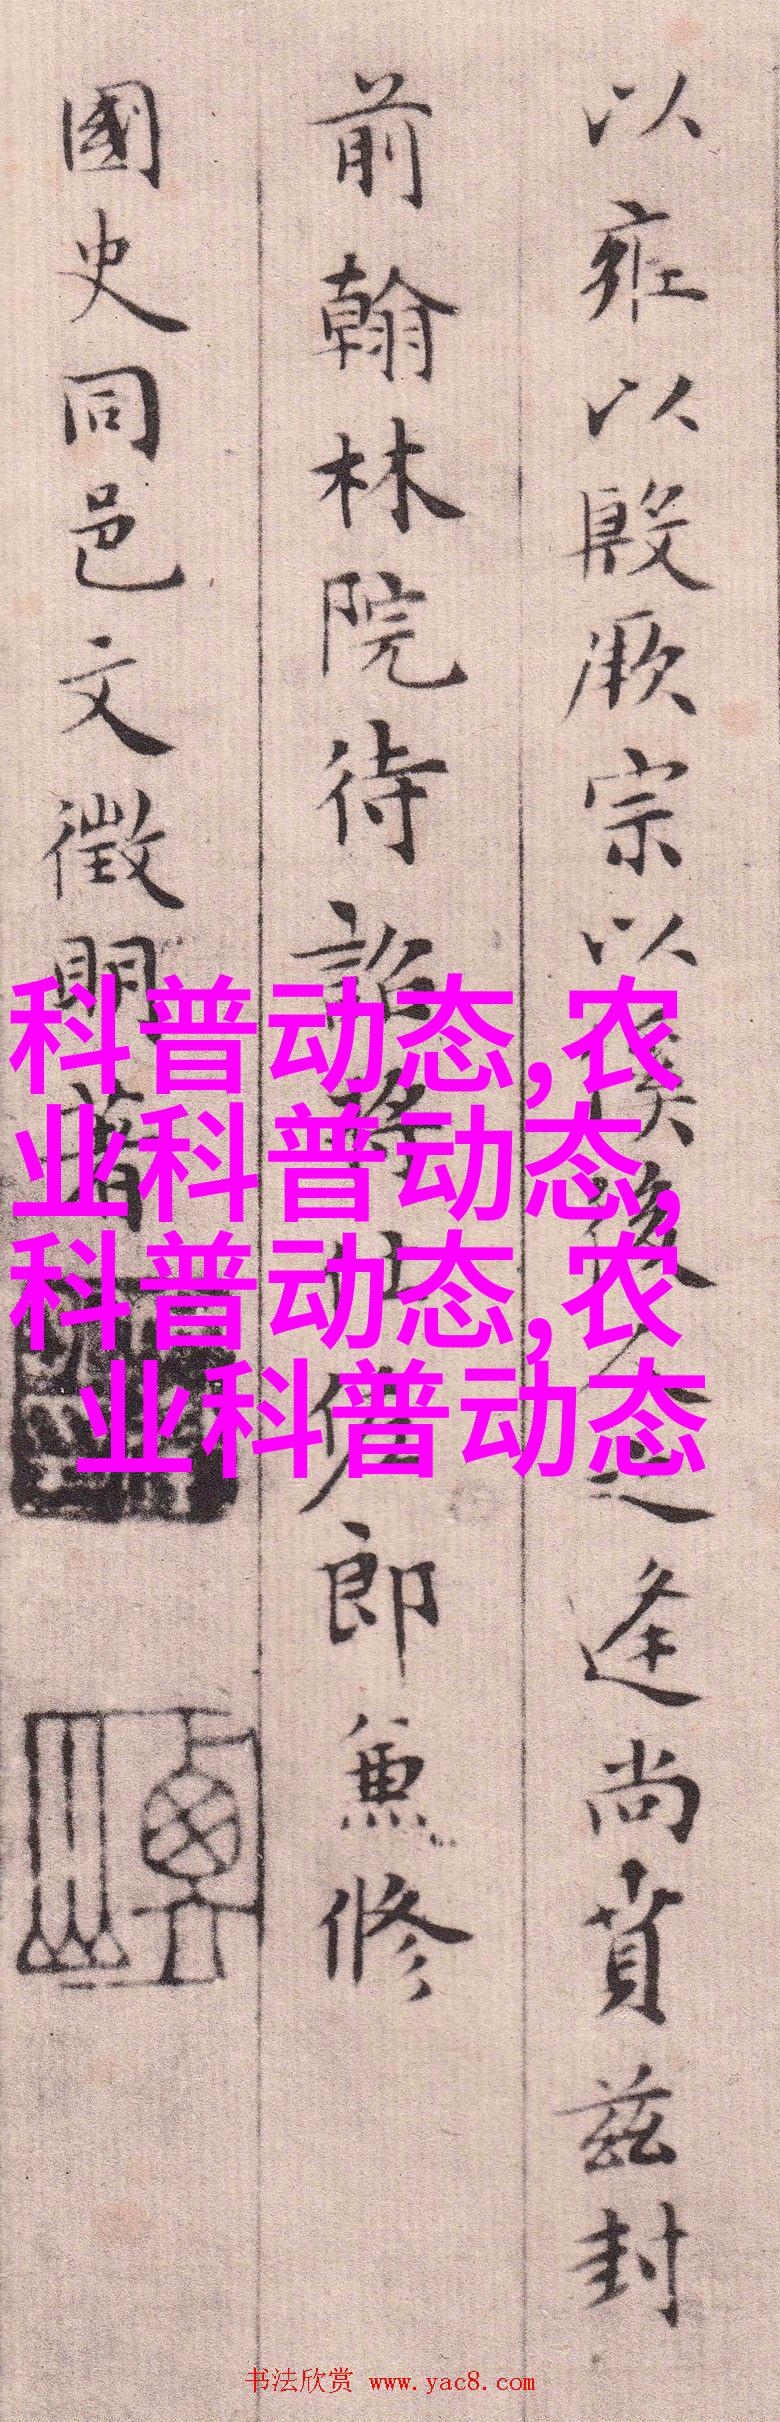 以雍以殷厥宗以後人之逢尚賁茲封
前翰林院待詔將仕佐郎兼修
國史同邑文徵明著
科普动态,农
业科普动态,
科普动态,农
业科普动态
书法欣赏 www.yac8.com